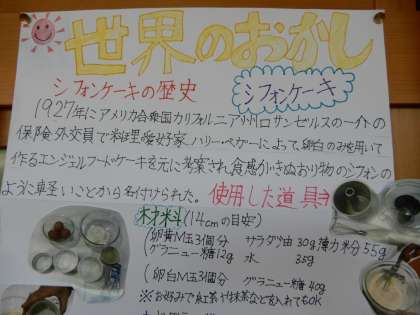 世界のおかし
シフォンケーキの歴史
シフォンケーキ
1927年にアメリカ合衆国カリフォルニア州ロサンゼルスの一介の
保険外交員で料理愛好家、ハリー・ベーカーによって、卵白のみ使いて
作るエンジェルフードケーキを元に考案され、食感がきぬおり物のシフォンの
ように軽いことから名付けられた。
使用した道具→
材料(14cmの目安)
(卵黄M玉3個分 サラダ油30g 薄力粉55g
グラニュー糖12g 水 35g
(卵白M玉3個分 グラニュー糖40g
※お好みで紅茶や抹茶などを入れてもOK